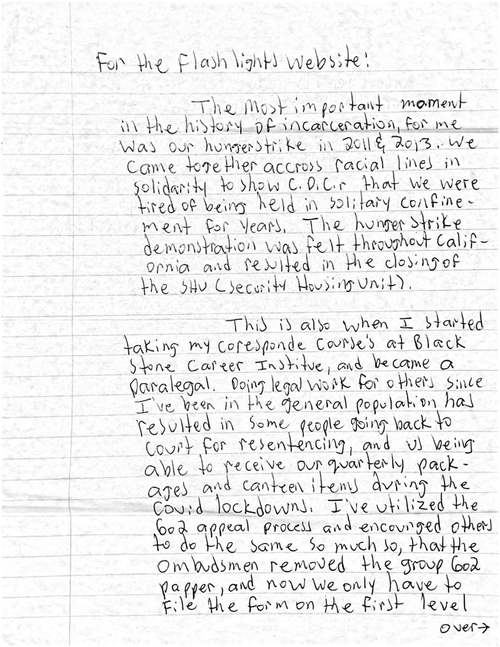 For the Flashlights Website:
The most important moment
in the history of incarceration, for me
was our hungerstrike in 2011 & 2013. We
came together accross racial lines in
solidarity to show C.D.C.r that we were
tired of being held in solitary confine-
ment for years. The hunger strike
demonstration was felt throughout Calif-
ornia and resulted in the closing of
the SHU (Security Housing Unit).
This is also when I started
taking my coresponde course's at Black
Stone Career Institve, and became a
paralegal. Doing legal work for others since
I've been in the general population has
resulted in some people going back to
court for resentencing, and us being
able to receive our quarterly pack-
ages and canteen items during the
Covid lockdowns. I've utilized the
602 appeal process and encourged others
to do the same so much so, that the
Ombudsmen removed the group 602
papper, and now we only have to
File the form on the first level
over→